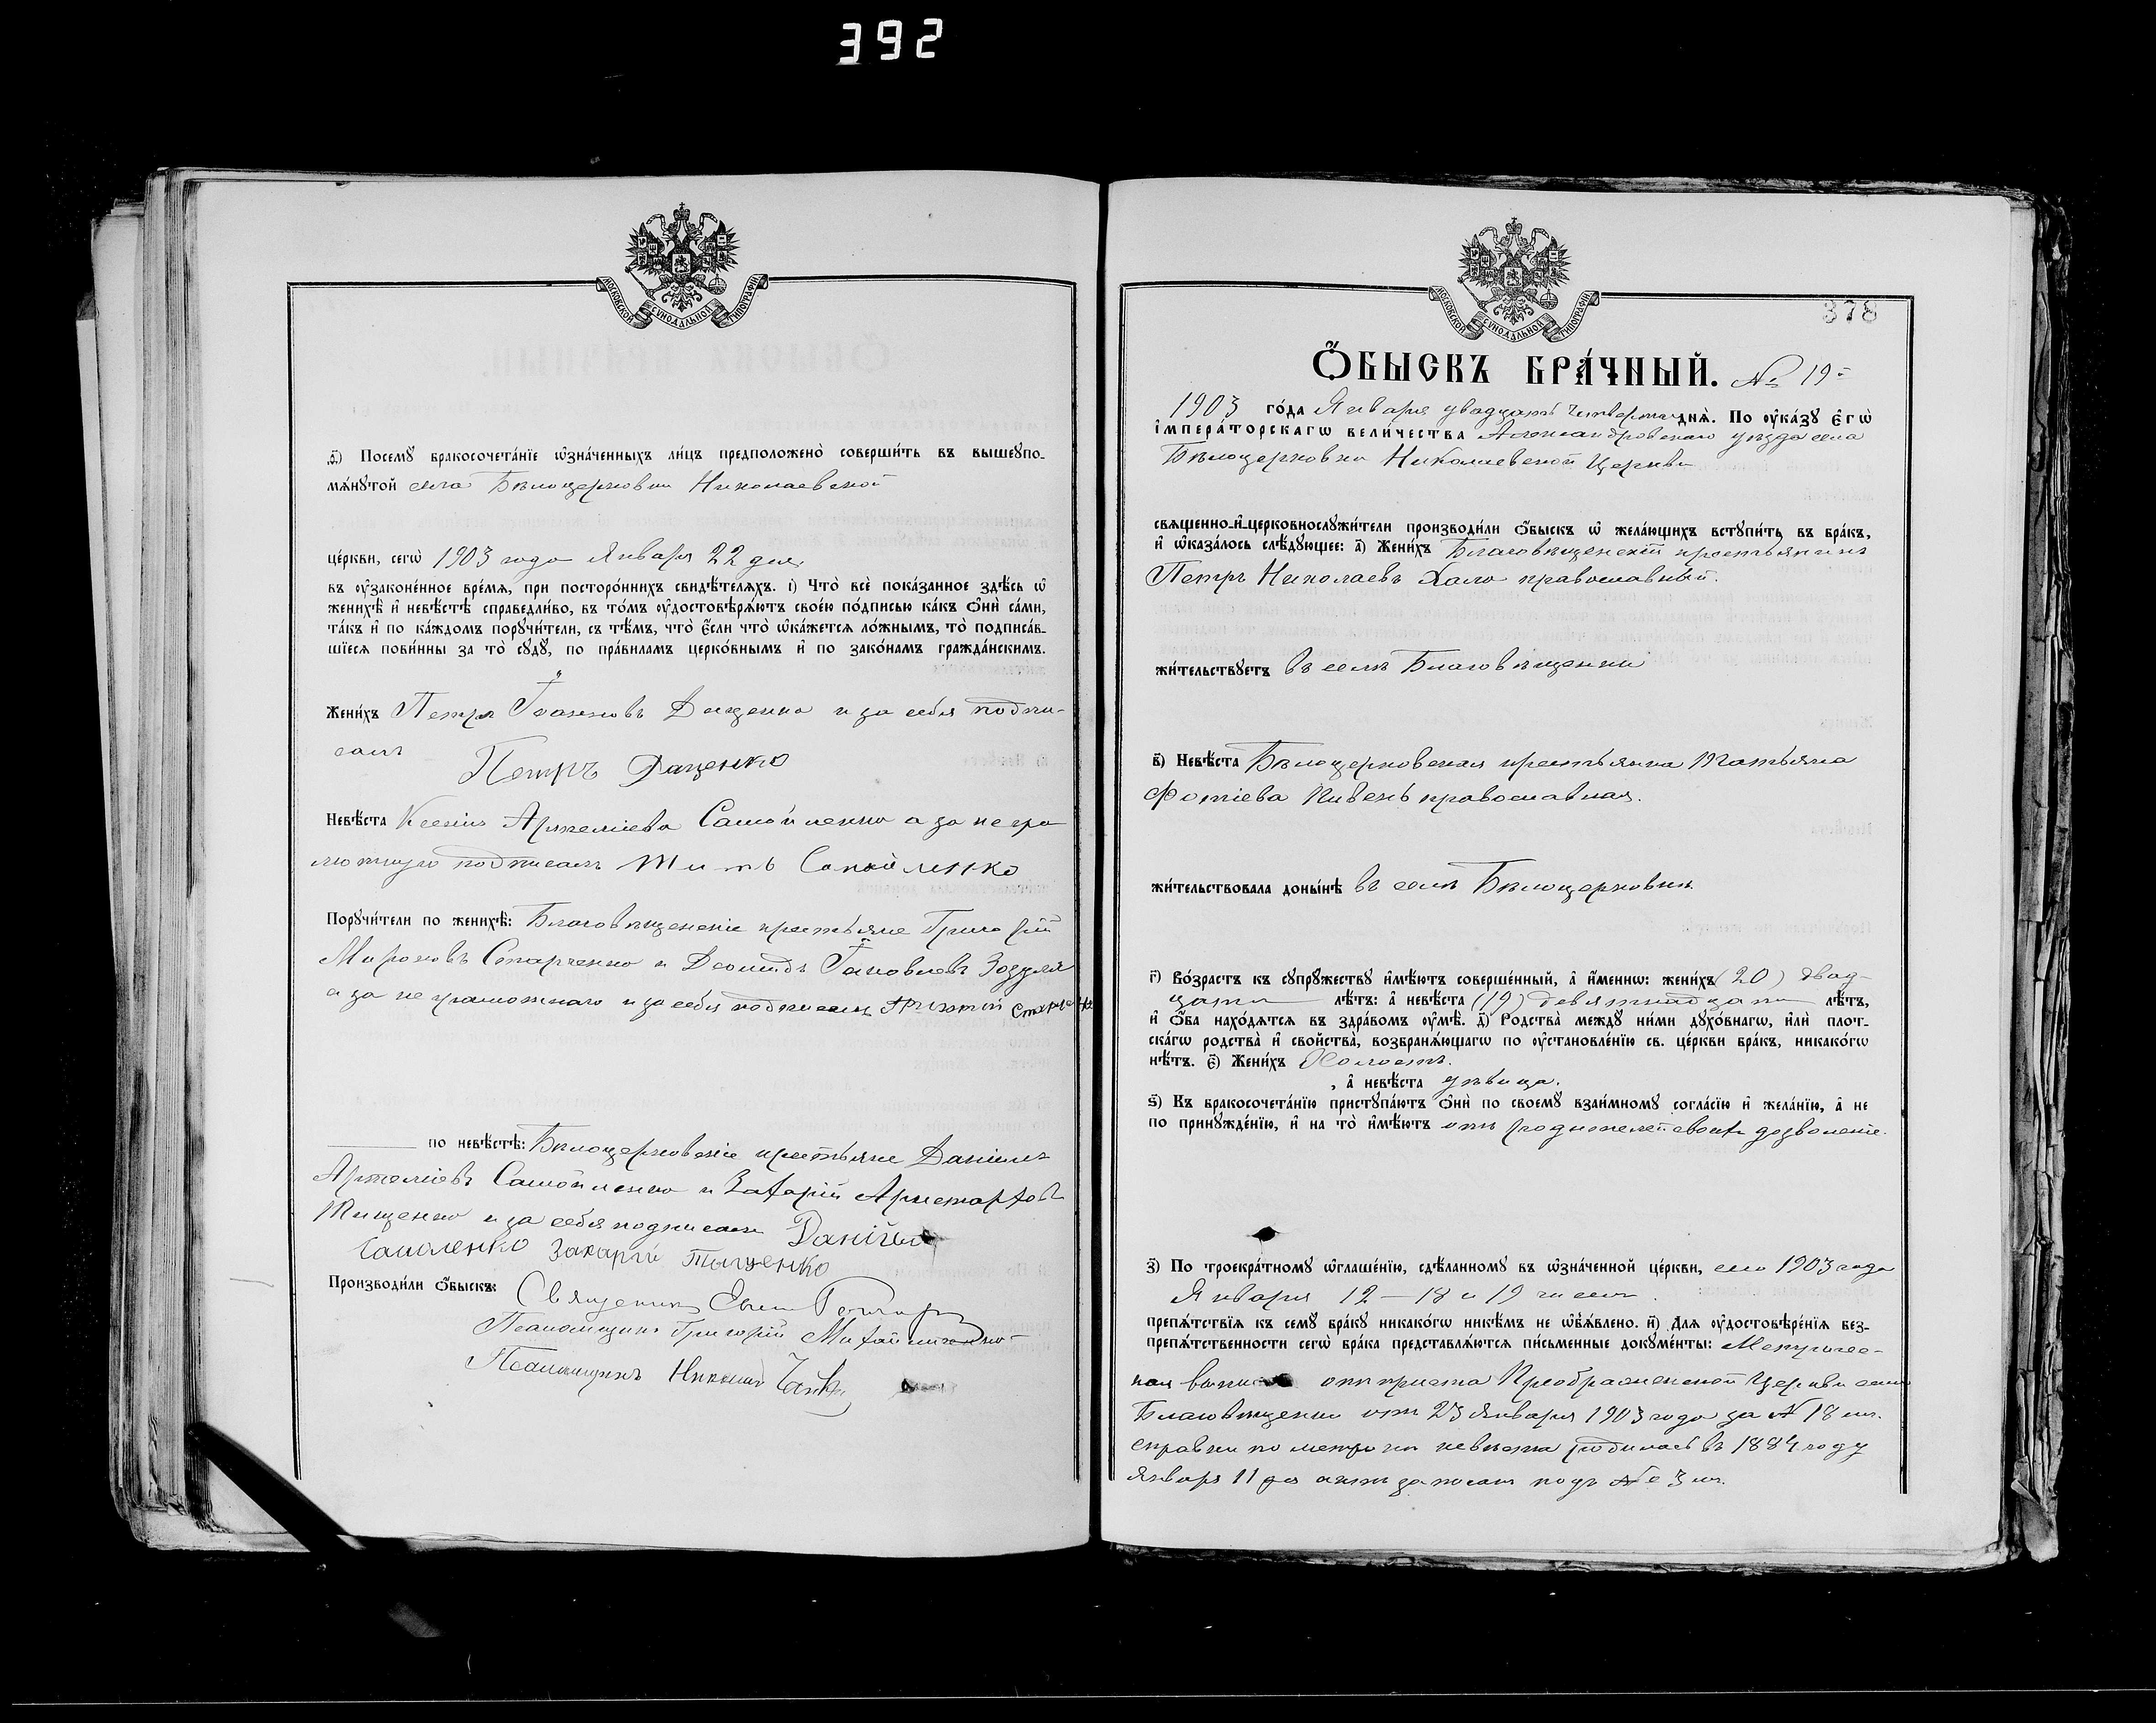 392
МОСКОВСКОЙ СѴНОДАЛЬНОЙ ТИПОГРАФІИ
ѳ҃) Посемꙋ̀ бракосочета́нїе ѡ҆зна́ченныхъ ли́цъ предположено̀ соверши́ть въ вышеꙋпо-
мѧ́нꙋтой села Бѣлоцерковки Николаевской
це́ркви, сегѡ̀ 1903 года Января 22 дня,
въ ᲂу҆зако́ненное вре́мѧ, при посторо́ннихъ свидѣ́телѧхъ. і҃) Что̀ всѐ пока́занное здѣ́сь ѡ҆
женихѣ̀ и҆ невѣ́стѣ справедли́во, въ то́мъ ᲂу҆достовѣрѧ́ютъ свое́ю по́дписью ка́къ ѻ҆нѝ са́ми,
та́къ и҆ по ка́ждомъ порꙋчи́тели, съ тѣ́мъ, что̀ є҆́сли что̀ ѡ҆ка́жетсѧ ло́жнымъ, то̀ подписа́в-
шїесѧ пови́нны за то̀ сꙋдꙋ̀, по пра́виламъ церко́внымъ и҆ по зако́намъ гражда́нскимъ.
Жени́хъ Петръ Іоанновъ Даценко и за себя подпи-
салъ Петръ Даценко
Невѣ́ста Ксенія Артеміева Самойленко а за негра
мотную подписалъ Титъ Самойленко
Порꙋчи́тели по женихѣ̀: Благовѣщенскіе крестьяне Григорій
Мироновъ Старченко и Леонидъ Іаковлевъ Зозуля
а за не грамотнаго и за себя подписалъ
по невѣ́стѣ: Бѣлоцерковскіе крестьяне Даніилъ
Артеміевъ Самойленко и Захарій Аристарховъ
Тищенко и за себя подписали Даніилъ
Самоленко Захарій Тыщенко
Производи́ли ѻ҆́быскъ: Священникъ
Псаломщикъ Григорій
Псаломщикъ Николай
378
Ѻ҆БЫСКЪ БРА́ЧНЫЙ. № 19
1903 го́да Января двадцать четвертаго днѧ̀. По ᲂу҆ка́зꙋ Є҆гѡ̀
І҆мпера́торскагѡ вели́чества Александровскаго уѣзда села
Бѣлоцерковки Николаевской Церкви
свѧщенно-и҆-церковнослꙋжи́тели производи́ли ѻ҆́быскъ ѡ҆ жела́ющихъ встꙋпи́ть въ бра́къ,
и҆ ѡ҆каза́лось слѣ́дꙋющее: а҃) Жени́хъ Благовѣщенскій крестьянинъ
Петръ Николаевъ Хало православный.
жи́тельствꙋетъ въ селѣ Благовѣщенки
в҃) Невѣ́ста Бѣлоцерковская крестьянка Татьяна
Фотіева Пивень православная.
жи́тельствовала доны́нѣ въ селѣ Бѣлоцерковки
г҃) Во́зрастъ къ сꙋпрꙋ́жествꙋ и҆мѣ́ютъ соверше́нный, а҆ и҆́меннѡ: жени́хъ (20) двад-
цати лѣ́тъ: а҆ невѣ́ста (19) девятнадцати лѣ́тъ,
и҆ ѻ҆́ба нахо́дѧтсѧ въ здра́вомъ ᲂу҆мѣ̀. д҃) Родства̀ междꙋ̀ ни́ми дꙋхо́внагѡ, и҆лѝ плот-
ска́гѡ родства̀ и҆ сво́йства, возбранѧ́ющагѡ по ᲂу҆становле́нїю св. це́ркви бра́къ, никако́гѡ
нѣ́тъ. є҃) Жени́хъ Холостъ.
, а҆ невѣ́ста дѣвица.
ѕ҃) Къ бракосочета́нїю пристꙋпа́ютъ ѻ҆нѝ по своемꙋ̀ взаи́мномꙋ согла́сїю и҆ жела́нїю, а҆ не
по принꙋжде́нїю, и҆ на то̀ и҆мѣ́ютъ отъ родителей своихъ дозволеніе.
з҃) По троекра́тномꙋ ѡ҆глаше́нїю, сдѣ́ланномꙋ въ ѡ҆зна́ченной це́ркви, сего 1903 года
Января 12 — 18 и 19 числа.
препѧ́тствїѧ къ семꙋ̀ бра́кꙋ никако́гѡ никѣ́мъ не ѡ҆б̾ѧ́влено. и҃) Длѧ ᲂу҆достовѣре́нїѧ без-
препѧ́тственности сегѡ̀ бра́ка представлѧ́ютсѧ пи́сьменные докꙋме́нты: Метричес-
кая отъ причта Преображенской Церкви села
Благовѣщенки отъ 23 Января 1903 года за № 18 мъ.
справки по метрики невѣста родилась въ 1884 году
Января 11 го актъ записанъ подъ № 3 мъ.